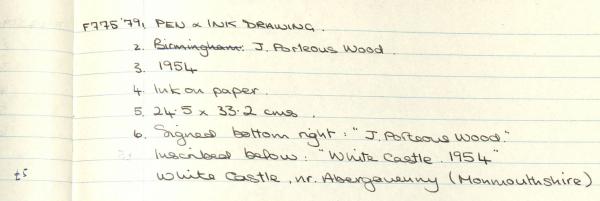 F775'79, PEN & INK DRAWING.
2. Birmingham: J. Porteous Wood.
3. 1954
4. Ink on paper.
5. 24.5 x 33.2 cms.
6. Signed bottom right: "J. Porteous Wood."
Inscribed below: "White Castle. 1954"
White Castle, nr. Abergavenny (Monmouthshire)